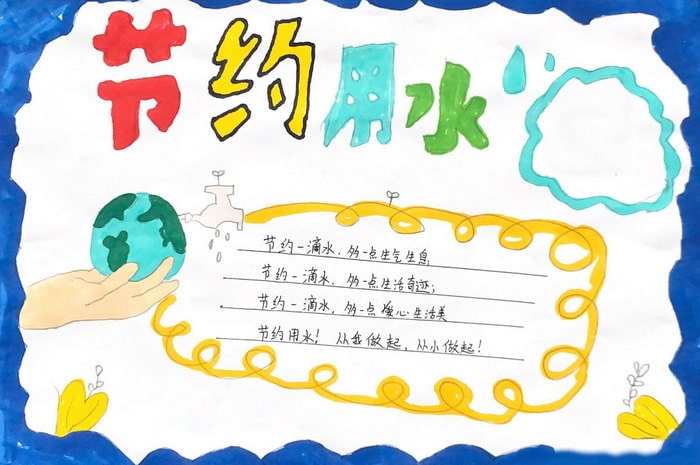 节约用水
节约一滴水，多一点生气生息
节约一滴水，多一点生活奇迹；
节约一滴水，多一点 心 生活美
节约用水！从我做起，从小做起！